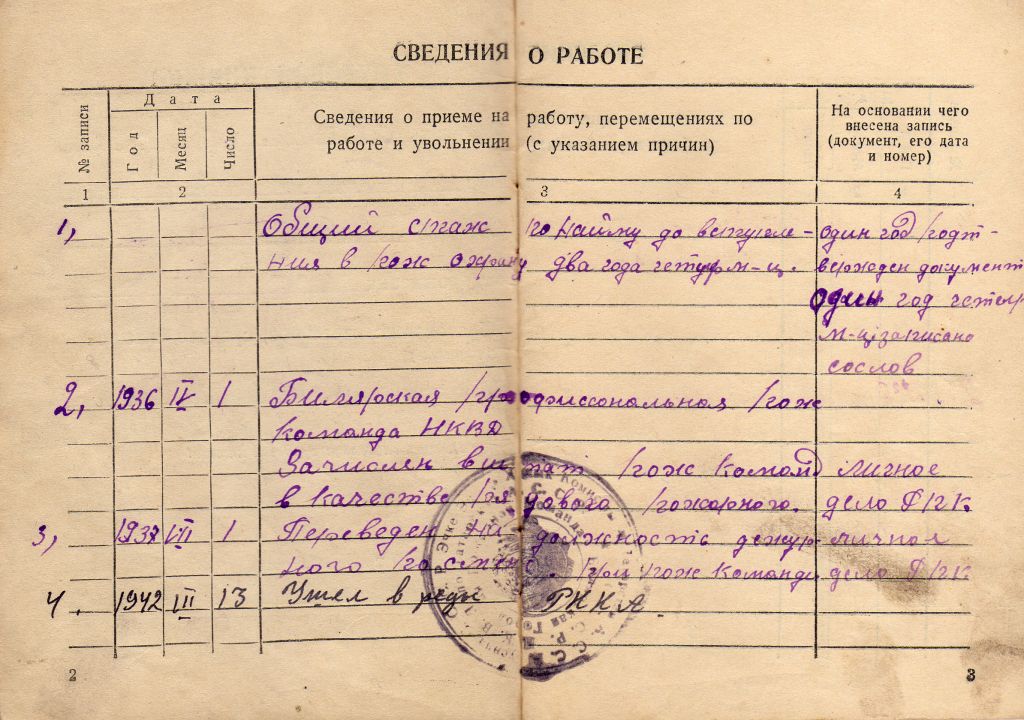 СВЕДЕНИЯ О РАБОТЕ
№ записи
Дата
Год
Месяц
Число
Сведения о приеме на работу, перемещениях по
работе и увольнении (с указанием причин)
На основании чего
внесена запись
(документ, его дата
и номер)
1 2 3 4
1, Общий стаж по найму до вступле- один год подт-
ния в пож охрану два года четыр м-ц. вержден документ
один год четыр
м-ц записано
сослов
2, 1936 IV 1 Билярская профиссональная пож
команда НКВД
Зачислен в штат пож команд личное
в качестве рядового пожарного. дело ППК.
3, 1937 VII 1 Переведен на должность дежур- личное
ного при пож команди дело ППК.
4. 1942 III 13 Ушел в ряды РККА.
2
3